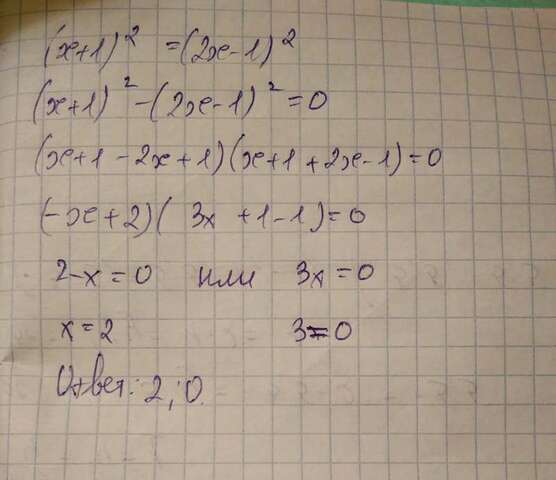 (x+1)² =(2x-1)²
(x+1)²-(2x-1)²=0
(x+1-2x+1)(x+1+2x-1)=0
(-x+2)(3x+1-1)=0
2-x=0 или 3x=0
x=2 3=0
Ответ: 2; 0.